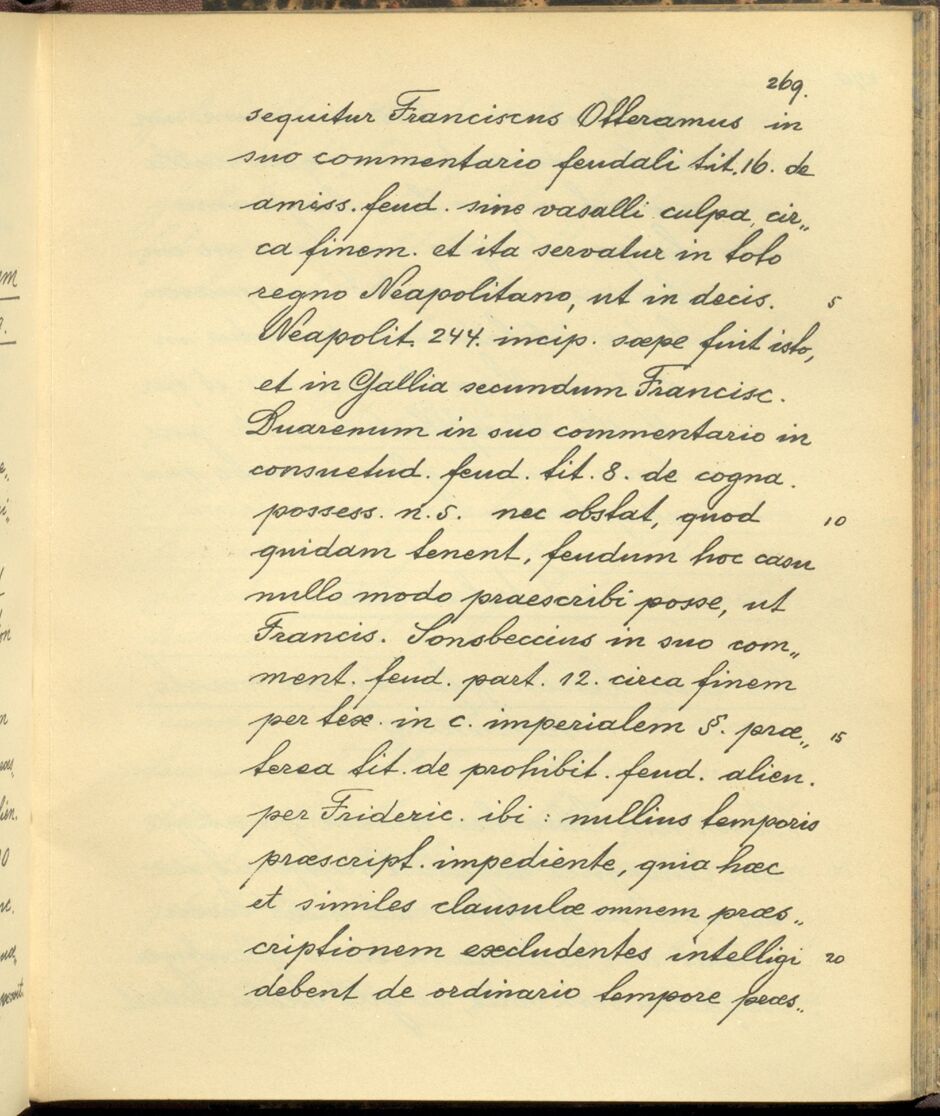 269.
sequitur Franciscus Otteramus in
suo commentario feudali tit. 16. de
amiss. feud. sine vasalli culpa, cir„
ca finem. et ita servatur in toto
regno Neapolitano, ut in decis. 5
Neapolit. 244. incip. sæpe fuit isto,
et in Gallia secundum Francisc.
Duarenum in suo commentario in
consuetud. feud. tit. 8. de cogna.
possess. n. 5. nec obstat, quod 10
quidam tenent, feudum hoc casu
nullo modo praescribi posse, ut
Francis. Sonsbeccius in suo com„
ment. feud. part. 12. circa finem
per tex. in c. imperialem §. præ„ 15
terea tit. de prohibit. feud. alien.
per Frideric. ibi : nullius temporis
præscript. impediente, quia hæc
et similes clausulæ omnem præs„
criptionem excludentes intelligi 20
debent de ordinario tempore præs„